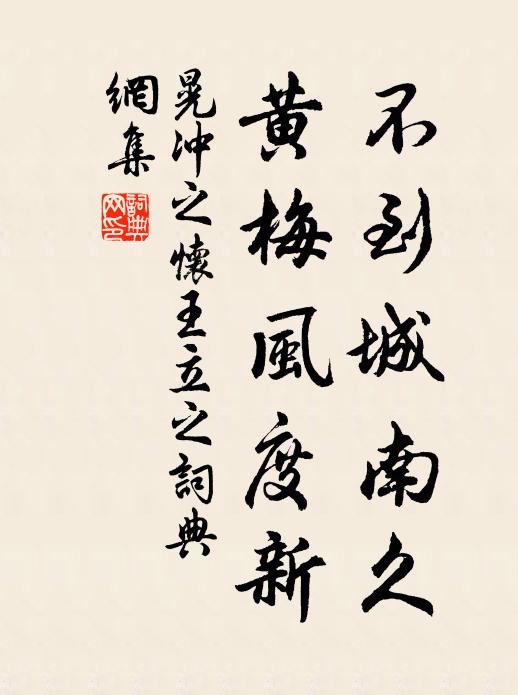 不到城南久
黃梅風度新
晁沖之懷王立之詞典
網集
詞典
网印